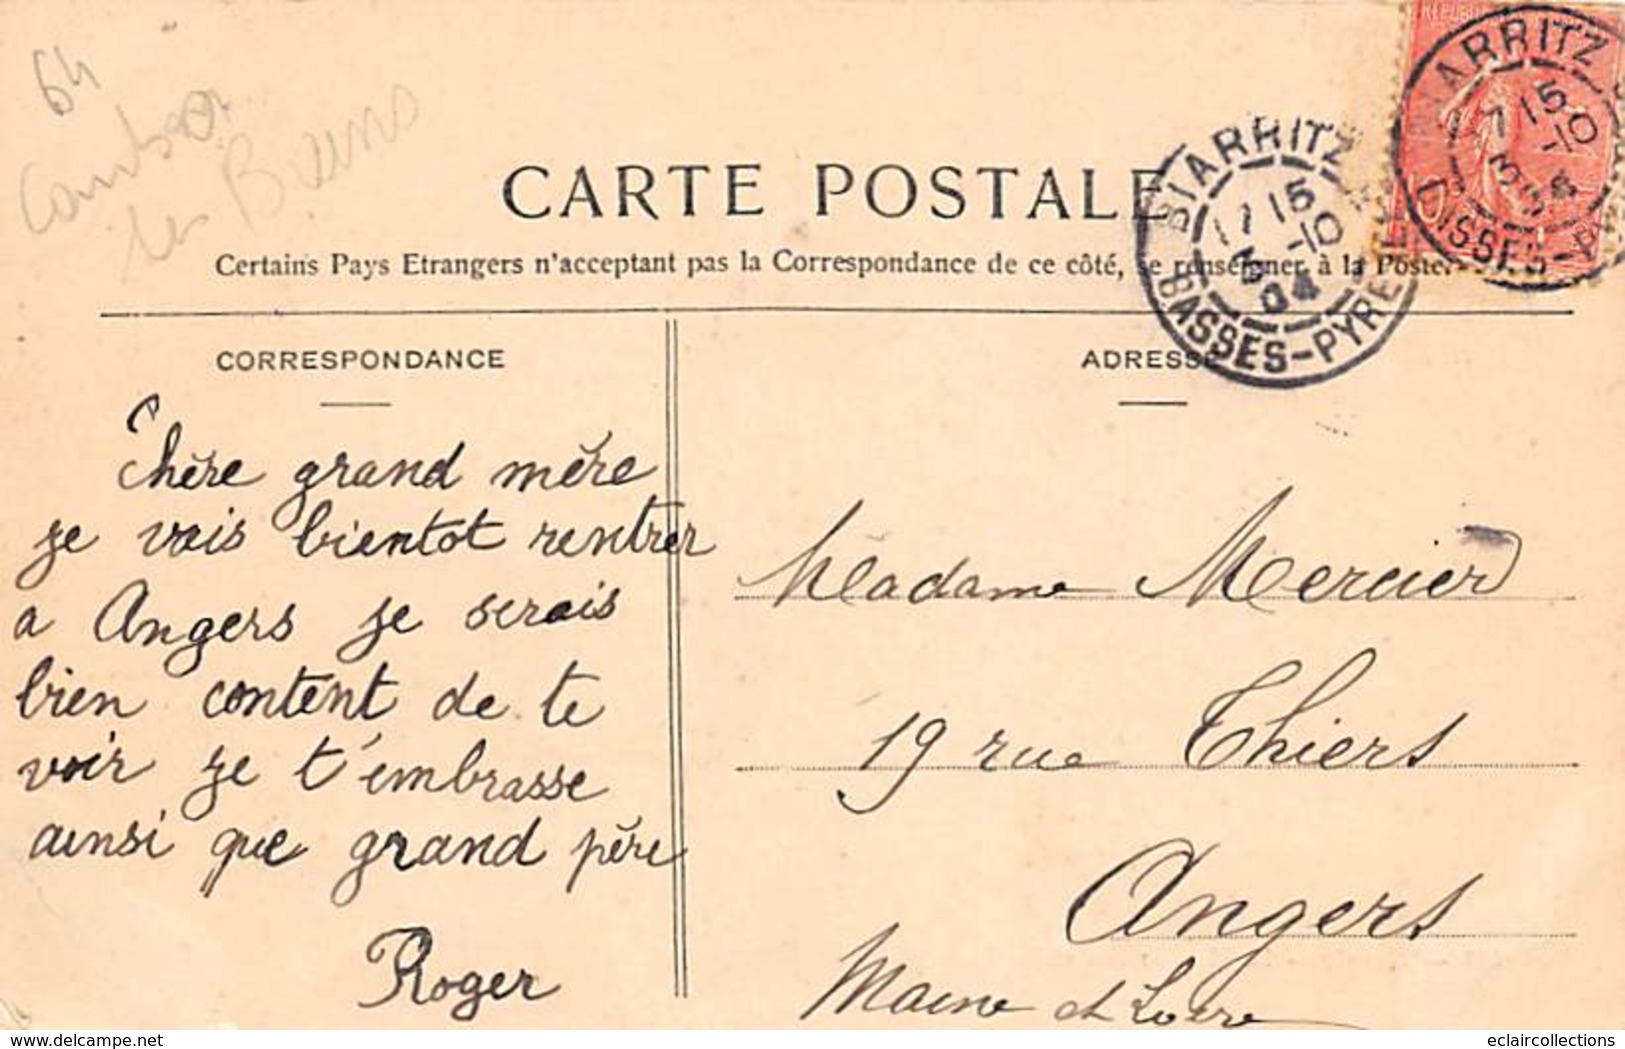 64
Cambo
les Bains
CARTE POSTALE
Certains Pays Etrangers n'acceptant pas la Correspondance de ce côté, se renseigner à la Poste.
BIARRITZ
17 15
3 -10
04
BASSES-PYRE
BIARRITZ
7 15
3 -10
04
BASSES-P
CORRESPONDANCE
Chère grand mère
je vais bientot rentrer
a Angers je serais
bien content de te
voir je t'embrasse
ainsi que grand père
Roger
ADRESSE
Madame Mercier
19 rue Thiers
Angers
Maine et Loire
www.delcampe.net
eclaircollections